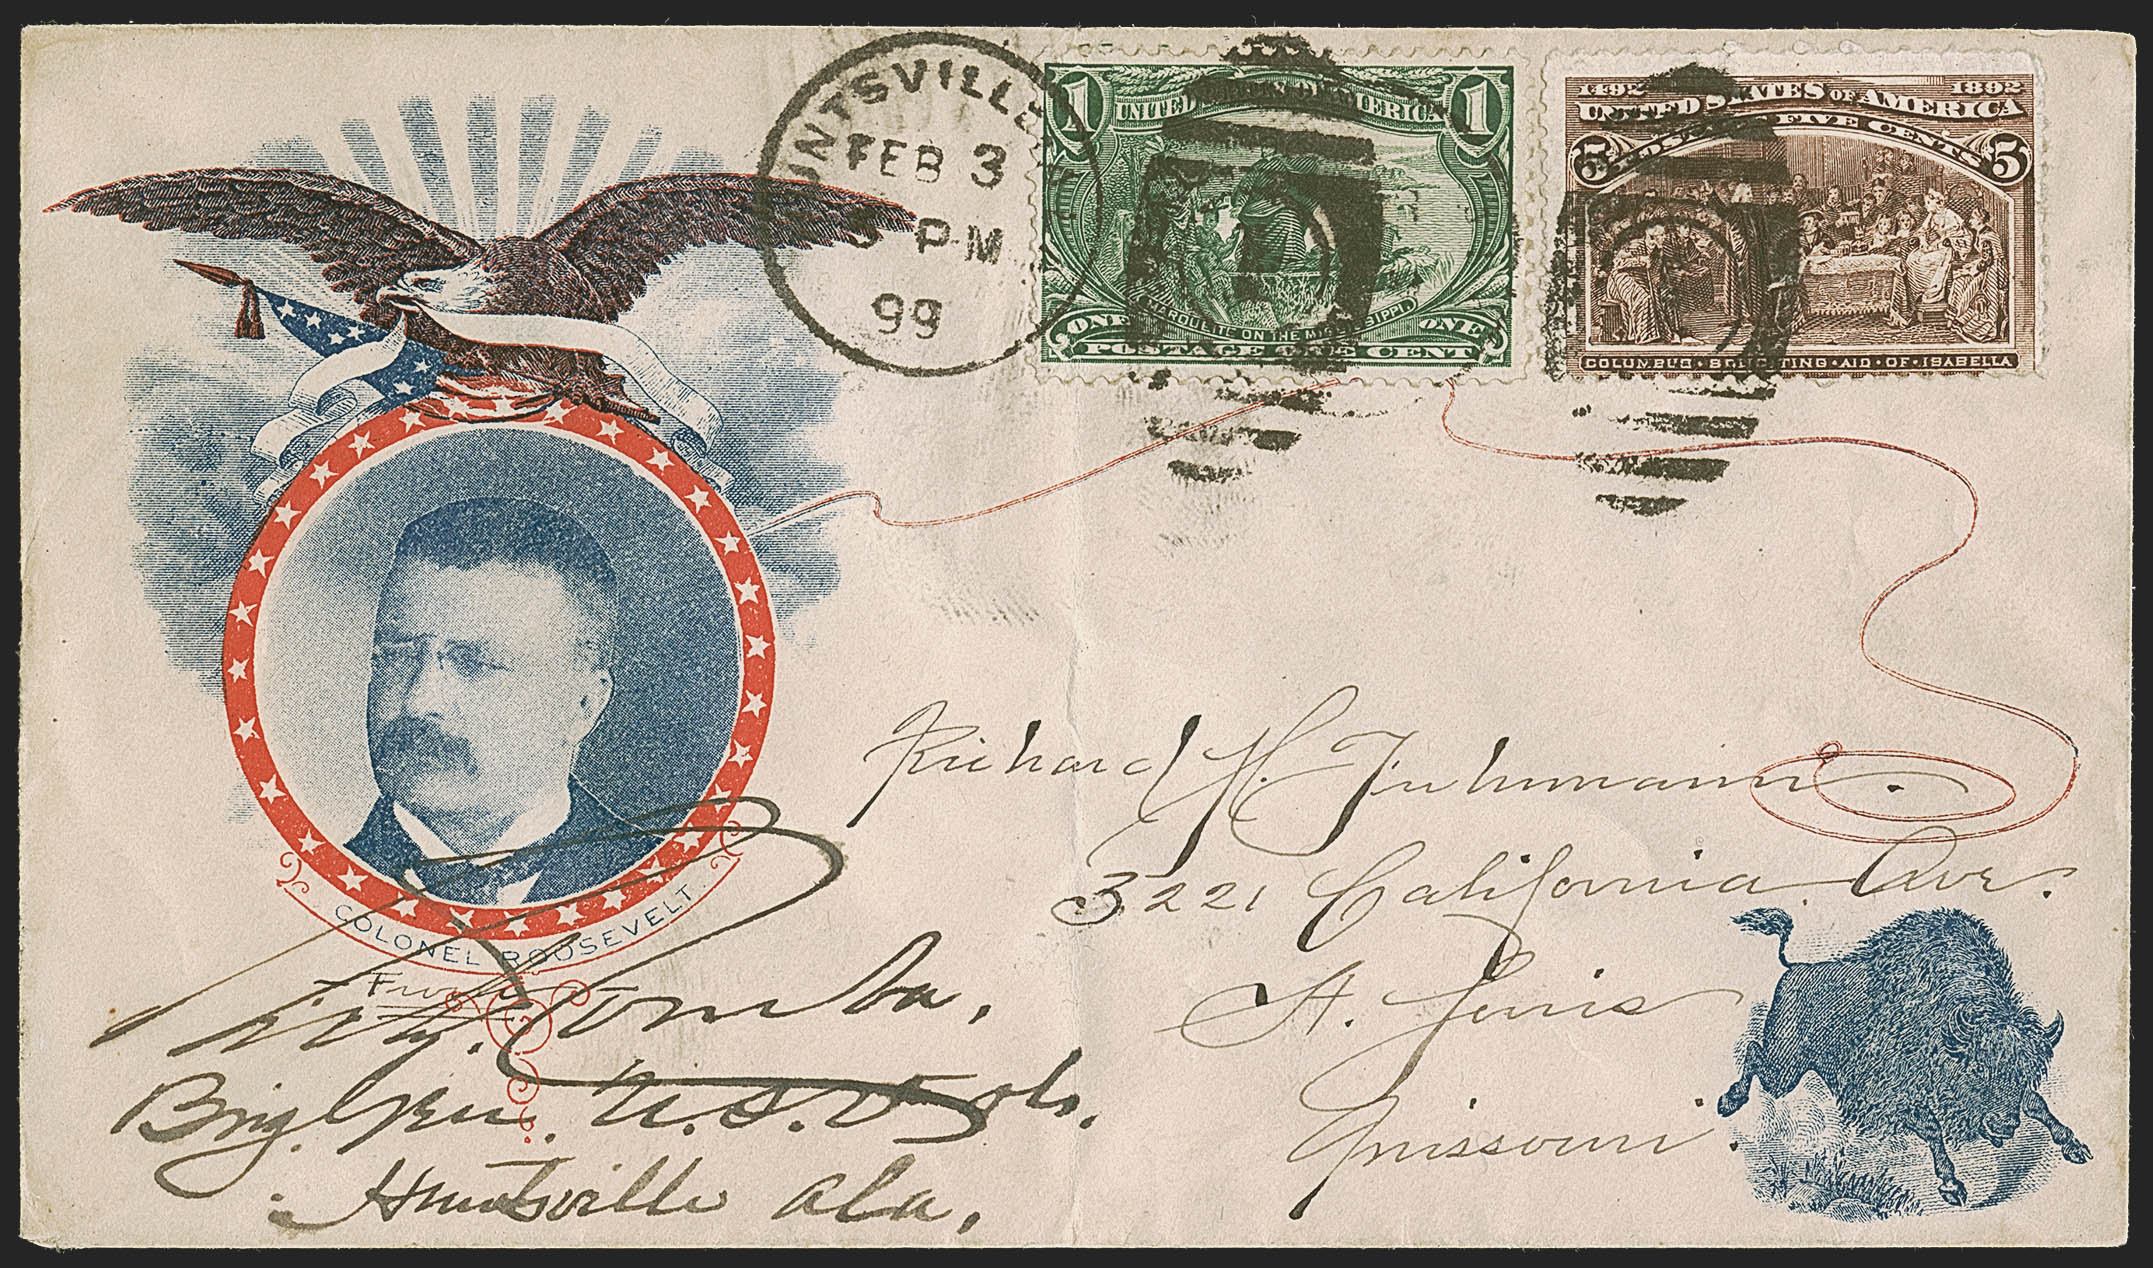 HUNTSVILLE
FEB 3
PM
99
1 UNITED STATES OF AMERICA 1
MARQUETTE ON THE MISSISSIPPI
ONE ONE
POSTAGE ONE CENT
1492 1892
UNITED STATES OF AMERICA
5 POSTAGE FIVE CENTS 5
COLUMBUS · SOLICITING · AID · OF · ISABELLA
COLONEL ROOSEVELT.
From
Brig. Gen. U.S. Vols.
Huntsville Ala,
Richard H. Fuhrmann.
3221 California Ave.
St. Louis
Missouri.